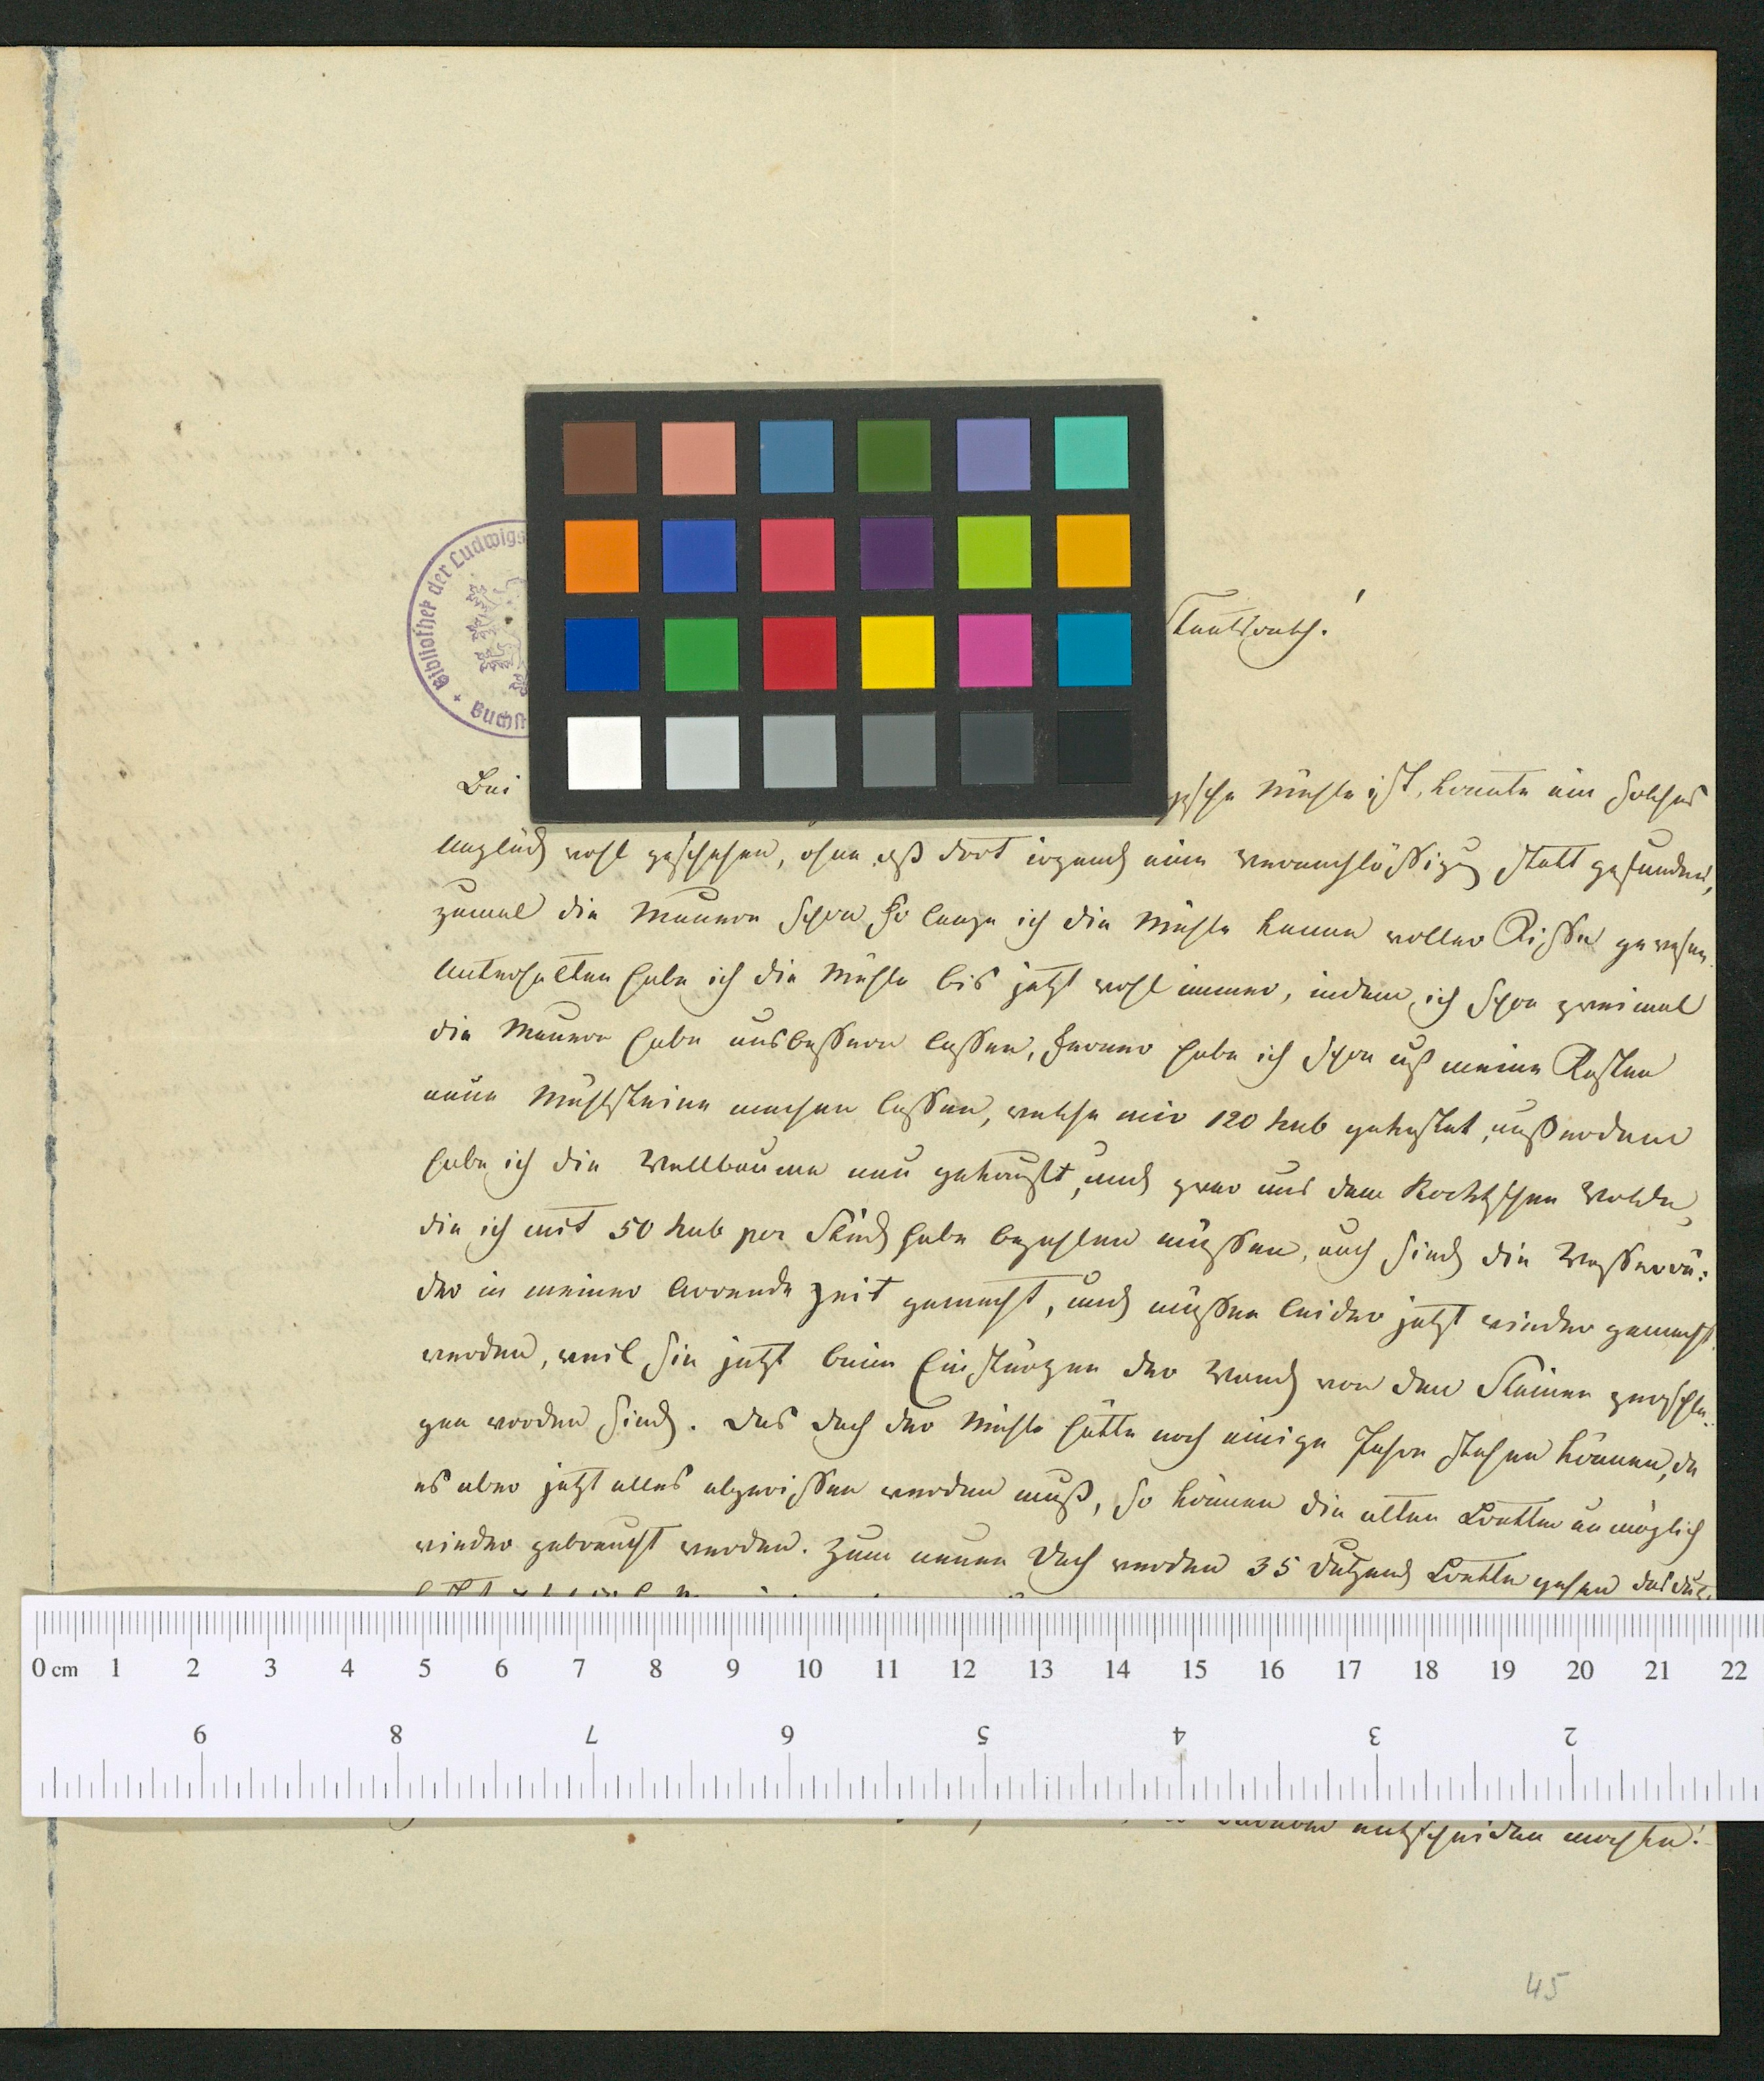 Bibliothek der Ludwigs
Buchs
Staatsrath!
Bei
sche Mühle ist, konnte ein solches
Unglück wohl geschehen, ohne daß dort irgend eine Vernachläßigung statt gefunden,
zumal die Mauern schon so lange ich die Mühle kenne voller Riße gewesen.
Unterhalten habe ich die Mühle bis jetzt wohl immer, indem ich schon zweimal
die Mauern habe ausbeßern laßen, ferner habe ich schon auf meine Kosten
neue Mühlsteine machen laßen, welche mir 120 Rub gekostet, außerdem
habe ich die Wellbäume neu gekauft, und zwar aus dem Walde,
die ich mit 50 Rub per Stück habe bezahlen müßen, auch sind die Waßerrä:
der in meiner Arrende Zeit gemacht, und müßen leider jetzt wieder gemacht
werden, weil sie jetzt beim Einstürzen der Wand von den Steinen zerschla:
gen worden sind. Das Dach der Mühle hätte noch einige Jahre stehen können, da
es aber jetzt alles abgerißen werden muß, so können die alten Bretter unmöglich
wieder gebraucht werden. Zum neuen Dach werden 35 Dutzend Bretter gehen das Dutz
0 cm 1 2 3 4 5 6 7 8 9 10 11 12 13 14 15 16 17 18 19 20 21 22
9 8 7 6 5 4 3 2
entscheiden möchten!
45